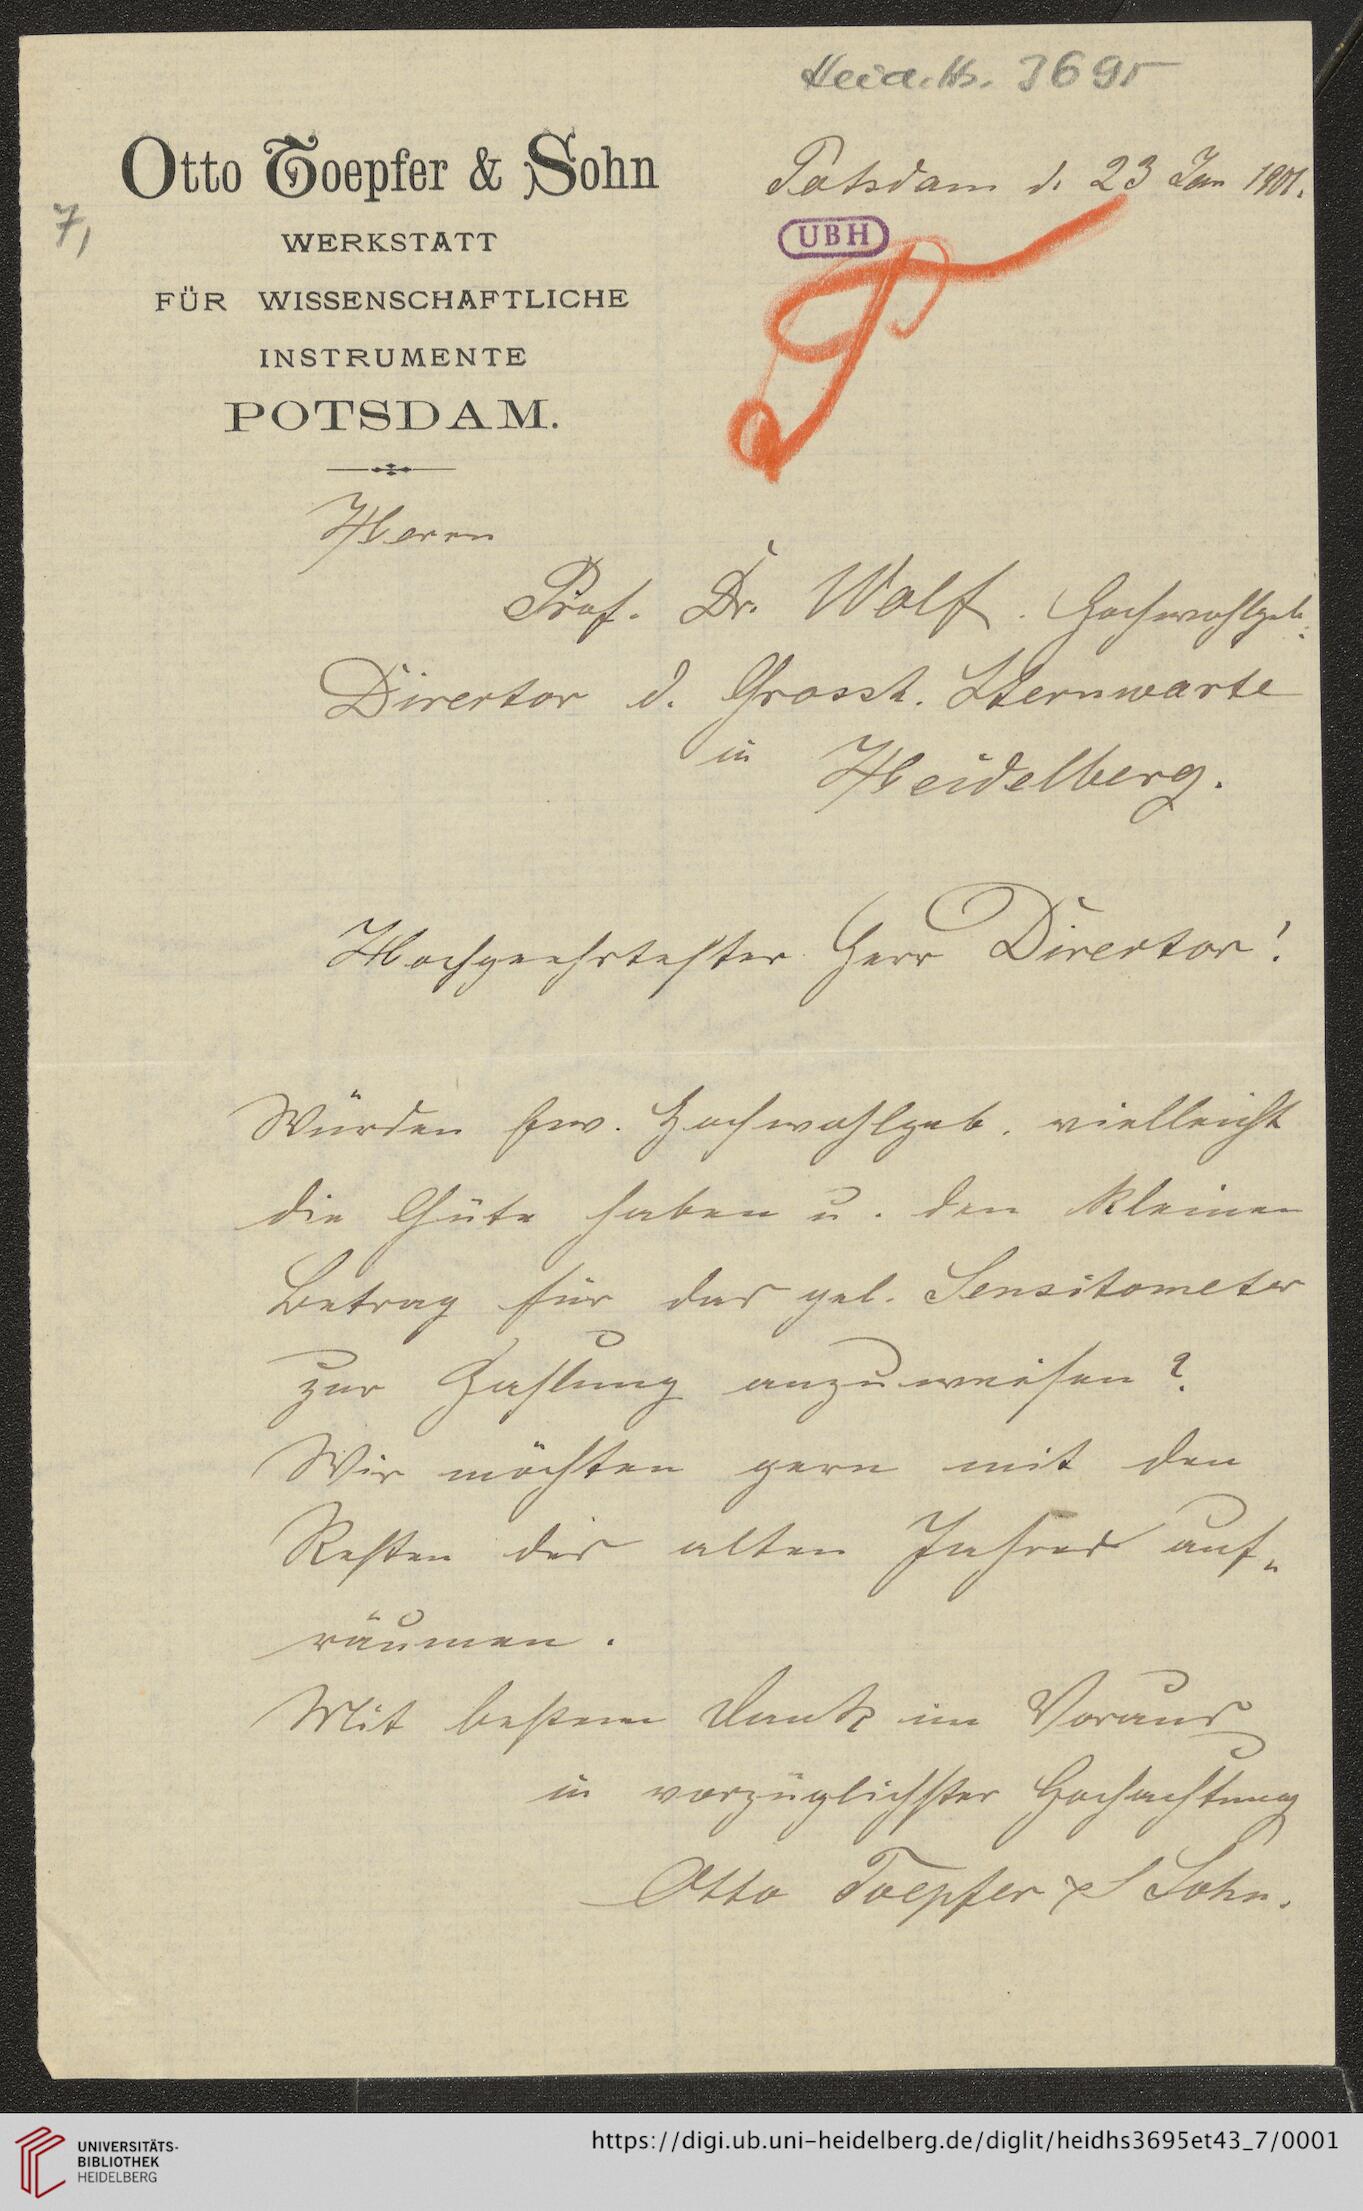 Heid. Hs. 3695
Otto Toepfer & Sohn
WERKSTATT
FÜR WISSENSCHAFTLICHE
INSTRUMENTE
POTSDAM.
7,
Potsdam d. 23 Jan 1901.
UBH
Herrn
Prof. Dr. Wolf. Hochwohlgeb.
Director d. Grossh. Sternwarte
in Heidelberg.
Hochgeehrtester Herr Director!
Würden Ew. Hochwohlgeb. vielleicht
die Güte haben u. den kleinen
Betrag für das gel. Sensitometer
zur Zahlung anzuweisen?
Wir möchten gern mit den
Resten des alten Jahres auf-
räumen.
Mit bestem Dank im Voraus
in vorzüglichster Hochachtung
Otto Toepfer & Sohn.
UNIVERSITÄTS-
BIBLIOTHEK
HEIDELBERG
https://digi.ub.uni-heidelberg.de/diglit/heidhs3695et43_7/0001